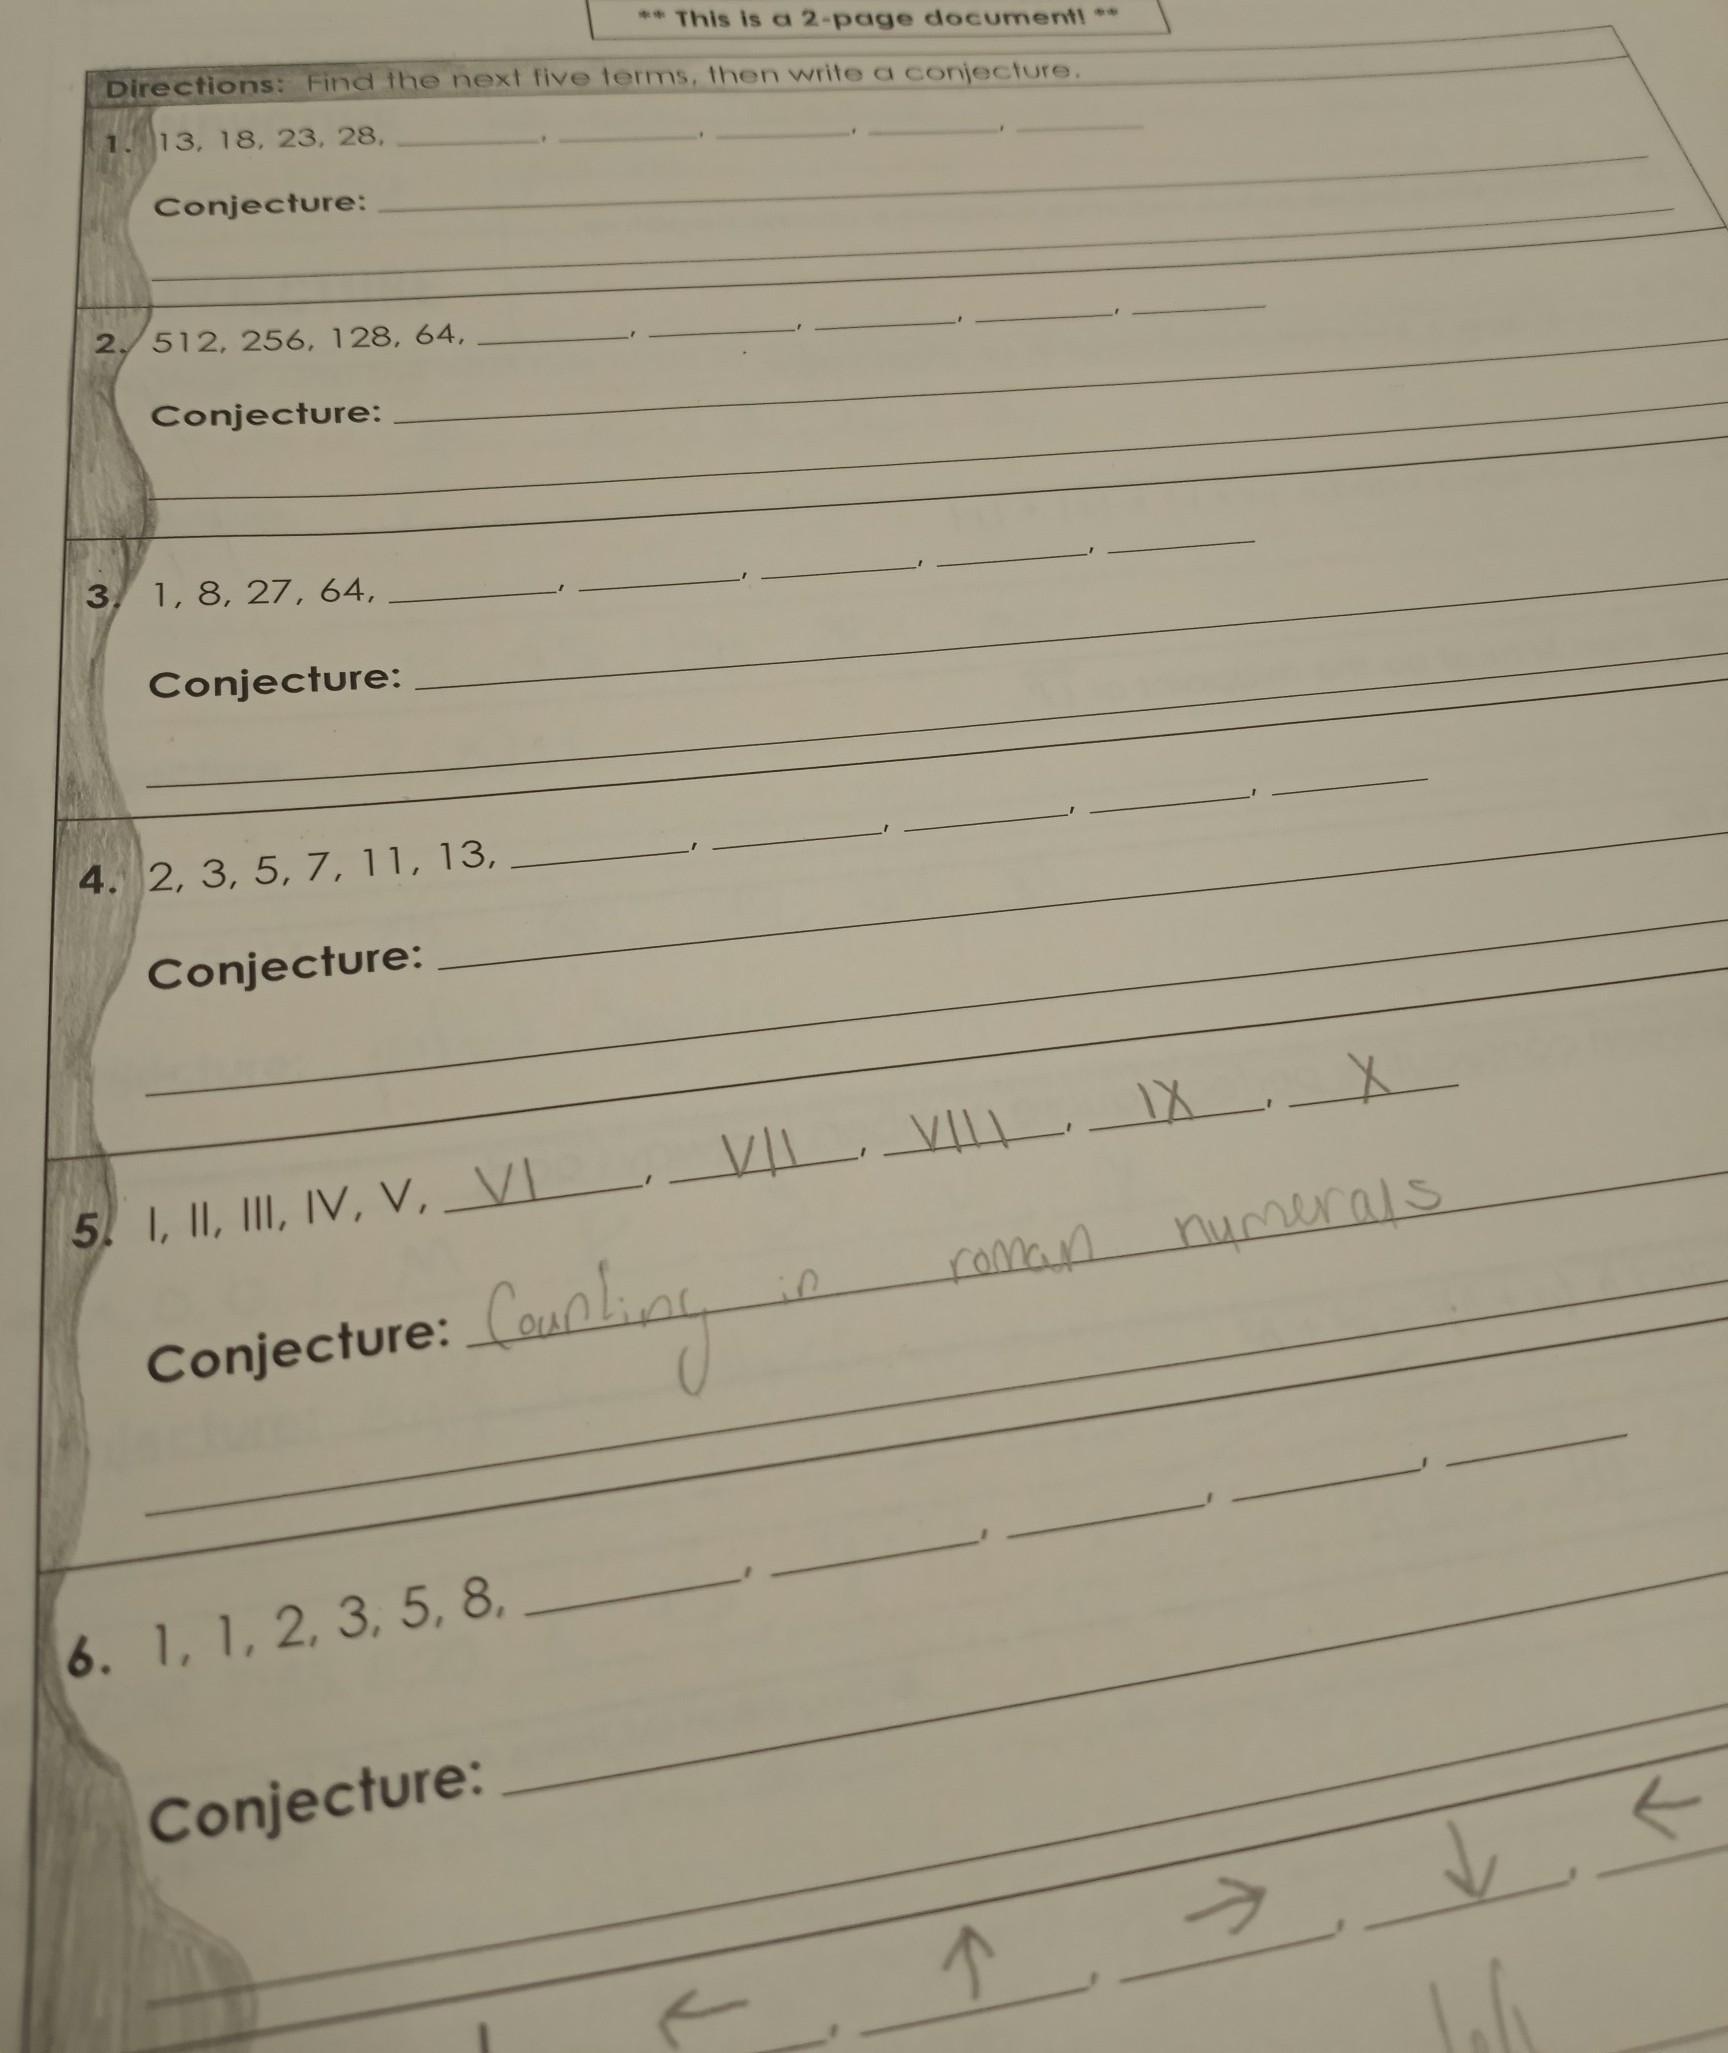 ** This is a 2-page document! **
Directions: Find the next five terms, then write a conjecture.
1. 13, 18, 23, 28, ______, ______, ______, ______, ______
Conjecture:
2. 512, 256, 128, 64, ______, ______, ______, ______, ______
Conjecture:
3. 1, 8, 27, 64, ______, ______, ______, ______, ______
Conjecture:
4. 2, 3, 5, 7, 11, 13, ______, ______, ______, ______, ______
Conjecture:
5. I, II, III, IV, V, VI, VII, VIII, IX, X
Conjecture: Counting in roman numerals
6. 1, 1, 2, 3, 5, 8, ______, ______, ______, ______, ______
Conjecture:
←, ↑, →, ↓, ←